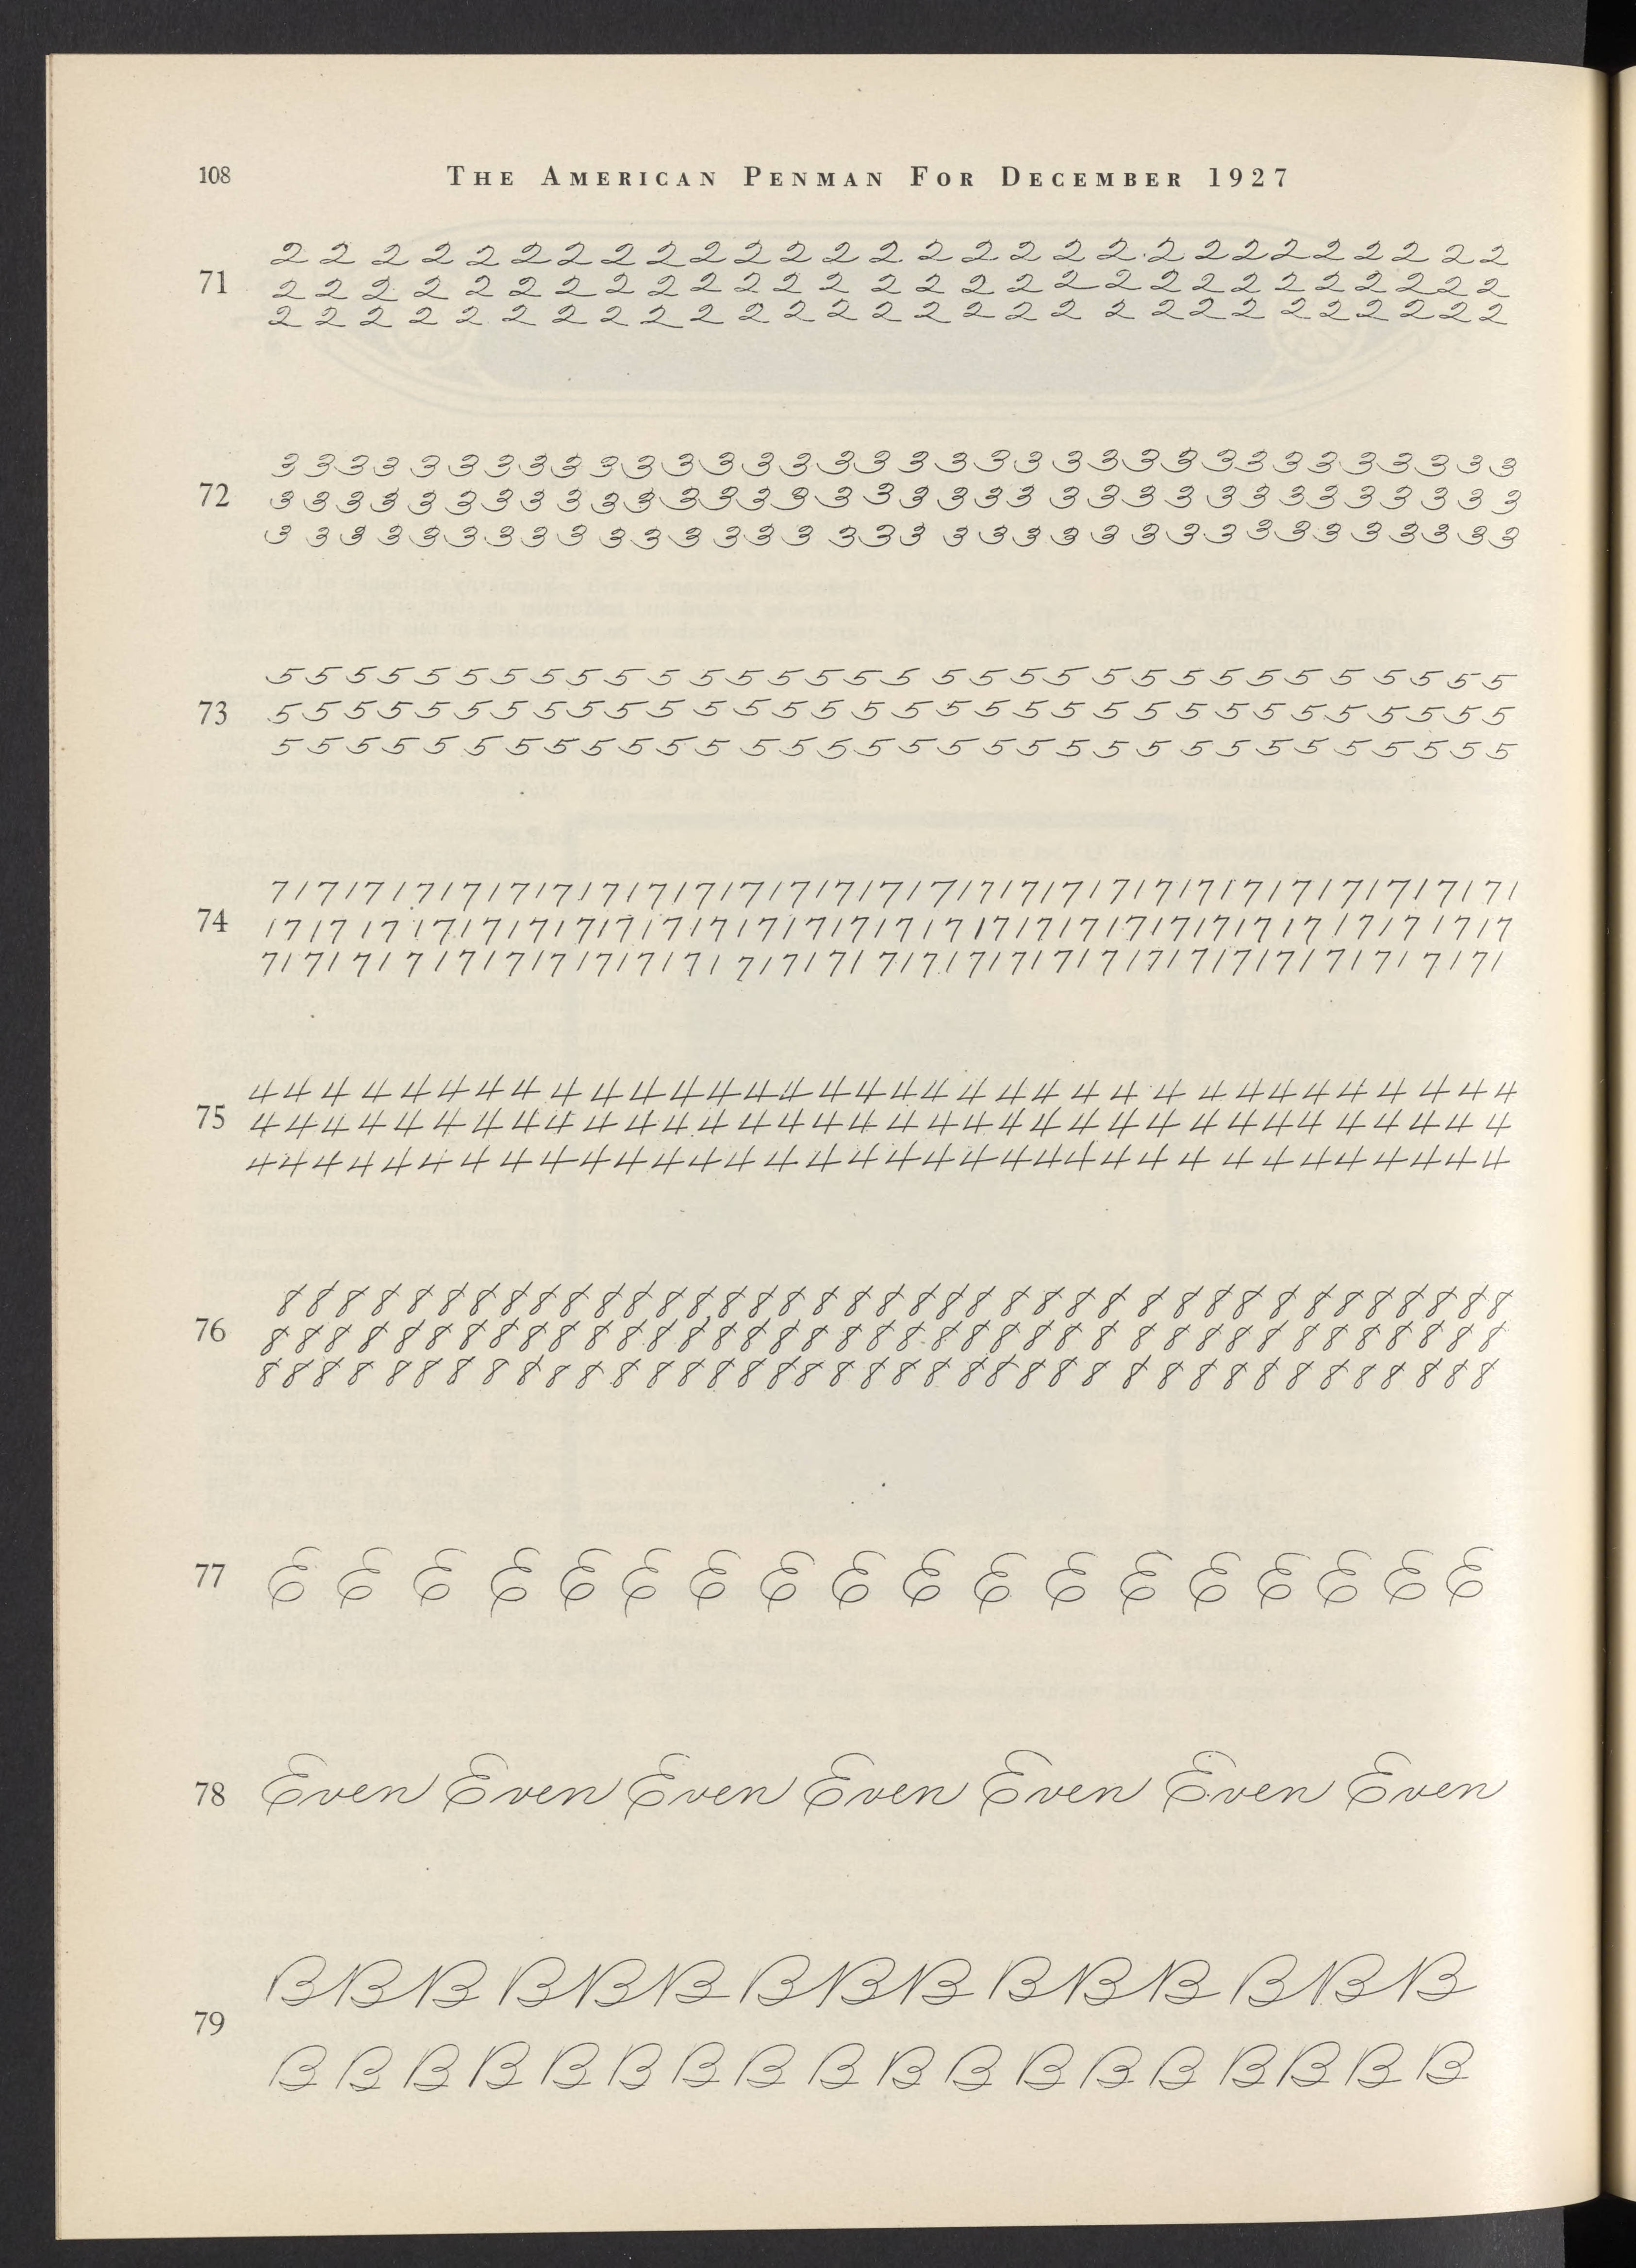 108 THE AMERICAN PENMAN FOR DECEMBER 1927
2 2 2 2 2 2 2 2 2 2 2 2 2 2 2 2 2 2 2 2 2 2 2 2 2 2 2 2
71 2 2 2 2 2 2 2 2 2 2 2 2 2 2 2 2 2 2 2 2 2 2 2 2 2 2 2 2
2 2 2 2 2 2 2 2 2 2 2 2 2 2 2 2 2 2 2 2 2 2 2 2 2 2 2 2
3 3 3 3 3 3 3 3 3 3 3 3 3 3 3 3 3 3 3 3 3 3 3 3 3 3 3 3 3 3 3 3 3 3
72 3 3 3 3 3 3 3 3 3 3 3 3 3 3 3 3 3 3 3 3 3 3 3 3 3 3 3 3 3 3 3 3 3 3
3 3 3 3 3 3 3 3 3 3 3 3 3 3 3 3 3 3 3 3 3 3 3 3 3 3 3 3 3 3 3 3 3 3
5 5 5 5 5 5 5 5 5 5 5 5 5 5 5 5 5 5 5 5 5 5 5 5 5 5 5 5 5 5 5 5
73 5 5 5 5 5 5 5 5 5 5 5 5 5 5 5 5 5 5 5 5 5 5 5 5 5 5 5 5 5 5 5 5
5 5 5 5 5 5 5 5 5 5 5 5 5 5 5 5 5 5 5 5 5 5 5 5 5 5 5 5 5 5 5 5
7 1 7 1 7 1 7 1 7 1 7 1 7 1 7 1 7 1 7 1 7 1 7 1 7 1 7 1 7 1 7 1 7 1 7 1 7 1 7 1 7 1 7 1 7 1 7 1 7 1 7 1 7 1
74 1 7 1 7 1 7 1 7 1 7 1 7 1 7 1 7 1 7 1 7 1 7 1 7 1 7 1 7 1 7 1 7 1 7 1 7 1 7 1 7 1 7 1 7 1 7 1 7 1 7 1 7 1 7
7 1 7 1 7 1 7 1 7 1 7 1 7 1 7 1 7 1 7 1 7 1 7 1 7 1 7 1 7 1 7 1 7 1 7 1 7 1 7 1 7 1 7 1 7 1 7 1 7 1 7 1 7 1
4 4 4 4 4 4 4 4 4 4 4 4 4 4 4 4 4 4 4 4 4 4 4 4 4 4 4 4 4 4 4 4 4 4
75 4 4 4 4 4 4 4 4 4 4 4 4 4 4 4 4 4 4 4 4 4 4 4 4 4 4 4 4 4 4 4 4 4 4
4 4 4 4 4 4 4 4 4 4 4 4 4 4 4 4 4 4 4 4 4 4 4 4 4 4 4 4 4 4 4 4 4 4
8 8 8 8 8 8 8 8 8 8 8 8 8 8 8 8 8 8 8 8 8 8 8 8 8 8 8 8 8 8 8 8 8 8 8 8 8 8 8
76 8 8 8 8 8 8 8 8 8 8 8 8 8 8 8 8 8 8 8 8 8 8 8 8 8 8 8 8 8 8 8 8 8 8 8 8 8 8 8
8 8 8 8 8 8 8 8 8 8 8 8 8 8 8 8 8 8 8 8 8 8 8 8 8 8 8 8 8 8 8 8 8 8 8 8 8 8 8
77 E E E E E E E E E E E E E E E E E E
78 Even Even Even Even Even Even Even
B B B B B B B B B B B B B B B
79
B B B B B B B B B B B B B B B B B B